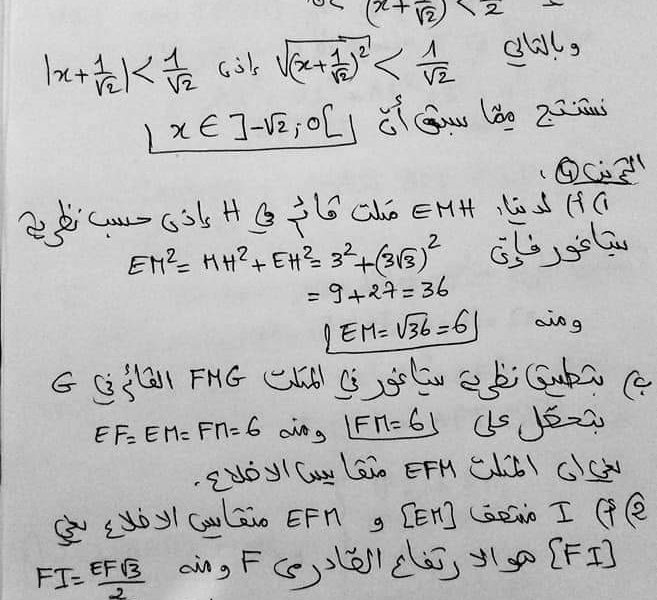 (x+1/√2) < 1/2
وبالتالي √(x+1/√2)² < 1/√2 إذن |x+1/√2| < 1/√2
نستنتج مما سبق أن x ∈ ]-√2;0[
التمرين 4:
1) أ) لدينا EMH مثلث قائم في H إذن حسب نظرية
بيتاغور فإن EM² = MH² + EH² = 3² + (3√3)²
= 9 + 27 = 36
ومنه EM = √36 = 6
ب) بتطبيق نظرية بيتاغور في المثلث FMG القائم في G
نتحصل على FM = 6 ومنه EF = EM = FM = 6
يعني ان المثلث EFM متقايس الاضلاع.
2) أ) I منتصف [EM] و EFM متقايس الاضلاع يعني
[FI] هو الارتفاع الصادر من F ومنه FI = EF√3/2